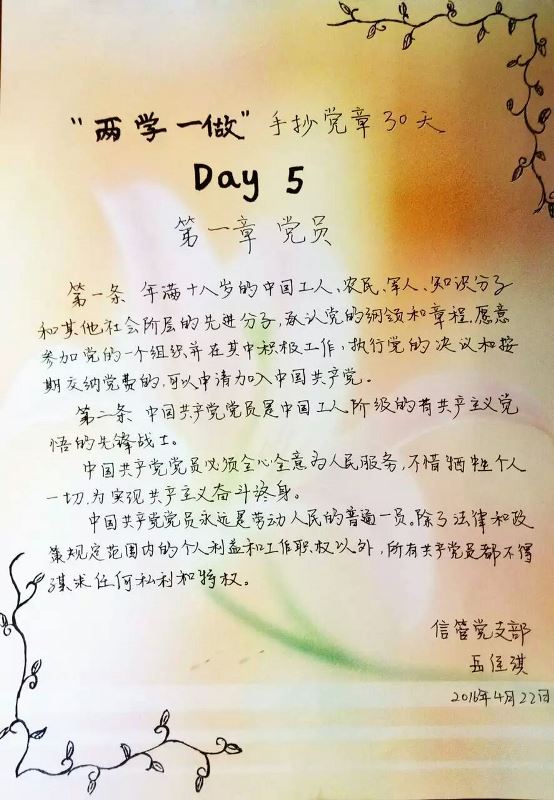 "两学一做"手抄党章30天
Day 5
第一章 党员
第一条 年满十八岁的中国工人、农民、军人、知识分子
和其他社会阶层的先进分子,承认党的纲领和章程,愿意
参加党的一个组织并在其中积极工作、执行党的决议和按
期交纳党费的,可以申请加入中国共产党。
第二条 中国共产党党员是中国工人阶级的有共产主义觉
悟的先锋战士。
中国共产党党员必须全心全意为人民服务,不惜牺牲个人
一切,为实现共产主义奋斗终身。
中国共产党党员永远是劳动人民的普通一员。除了法律和政
策规定范围内的个人利益和工作职权以外,所有共产党员都不得
谋求任何私利和特权。
信管党支部
岳佳琪
2016年4月22日